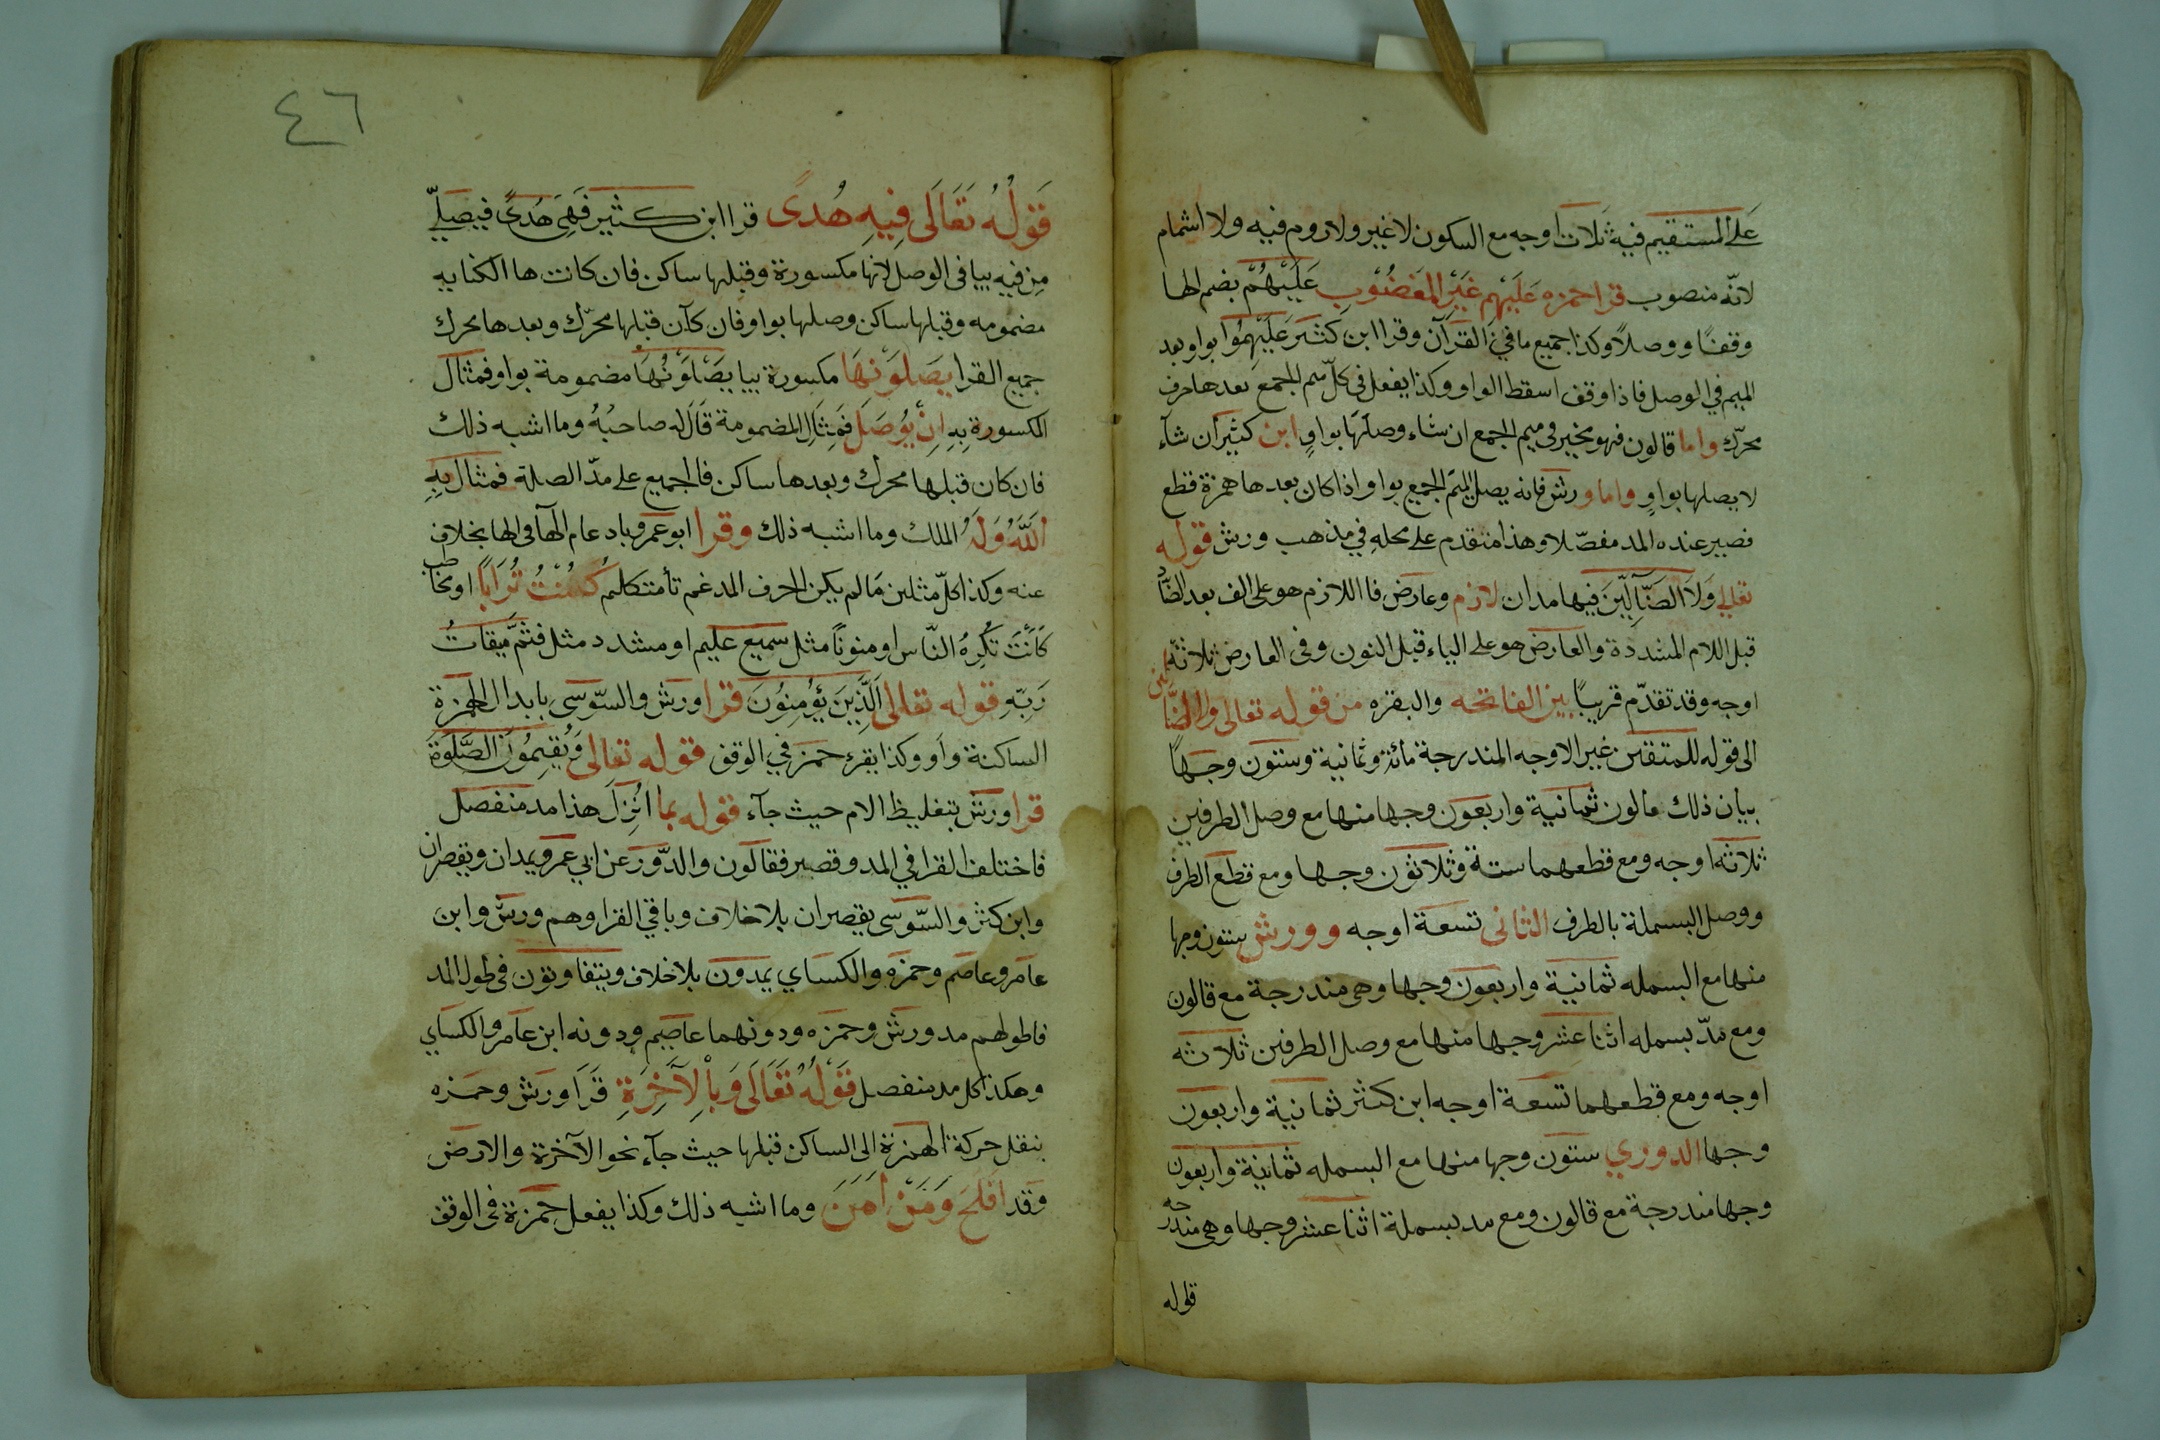 على المستقيم فيه ثلاث اوجه مع السكون لا غير ولا روم فيه ولا اشمام
لانه منصوب قرا حمزه عليهم غير المغضوب عليهم بضم الها
وقفا ووصلا وكذا جميع ما في القرآن وقرا ابن كثير عليهموا بواو بعد
الميم في الوصل فاذا وقف اسقط الواو وكذا يفعل في كل ميم الجمع بعدها حرف
محرك واما قالون فهو مخير في ميم الجمع ان شاء وصلها بواو ابن كثير ان شآء
لا يصلها بواو واما ورش فانه يصل الميم الجمع بواو اذا كان بعدها همزة قطع
فصير عنده المد مفصلا وهذا متقدم على محله في مذهب ورش قوله
تعالى ولا الضآلين فيها مدان لازم وعارض فا اللازم هو على الف بعد الضاد
قبل اللام المشددة والعارض هو على الياء قبل النون وفى العارض ثلاثة
اوجه وقد تقدم قريبا بين الفاتحه والبقره من قوله تعالى ولا الضالين
الى قوله للمتقين غير الاوجه المندرجة مائة وثمانية وستون وجها
بيان ذلك قالون ثمانية واربعون وجها منها مع وصل الطرفين
ثلاثه اوجه ومع قطعهما ستة وثلاثون وجها ومع قطع الطرف
ووصل البسملة بالطرف الثانى تسعة اوجه وورش ستون وجها
منها مع البسمله ثمانية واربعون وجها وهى مندرجة مع قالون
ومع مد بسمله اثنا عشر وجها منها مع وصل الطرفين ثلاثه
اوجه ومع قطعهما تسعة اوجه ابن كثير ثمانية واربعون
وجها الدوري ستون وجها منها مع البسمله ثمانية واربعون
وجها مندرجة مع قالون ومع مد بسملة اثنا عشر وجها وهى مندرجه
قوله
٤٦
قوله تعالى فيه هدى قرا ابن كثير فهى هدى فيصلي
من فيه بيا فى الوصل لانها مكسورة وقبلها ساكن فان كانت ها الكنايه
مضمومه وقبلها ساكن وصلها بواو فان كان قبلها محرك وبعدها محرك
جميع القرا يصلونها مكسورة بيا يصلونها مضمومة بواو فمثال
الكسورة به ان يوصل فمثال المضمومة قال له صاحبه وما اشبه ذلك
فان كان قبلها محرك وبعدها ساكن فالجميع على مد الصلة فمثال به
الله وله الملك وما اشبه ذلك وقرا ابو عمرو بادعام الهآ فى الها بخلاف
عنه وكذا كل مثلين مالم يكن الحرف المدغم تأ متكلم كنت ترابا او مخاطب
كأنت تكره الناس او منونا مثل سميع عليم او مشدد مثل فتم ميقات
ربه قوله تعالى الذين يؤمنون قرا ورش والسوسى بابدال الهمزة
الساكنة واو وكذا يقرء حمزه في الوقف قوله تعالى ويقيمون الصلوة
قرا ورش بتغليظ الام حيث جآء قوله بما انزل هذا مد منفصل
فاختلف القرا في المد وقصير فقالون والدور عن ابي عمرو يمدان ويقصران
وابن كثير والسوسى يقصران بلا خلاف وباقي القرا وهم ورش وابن
عامر وعاصم وحمزه والكساي يمدون بلا خلاف ويتفاوتون فى طول المد
فاطولهم مد ورش وحمزه ودونهما عاصم ودونه ابن عامر والكساي
وهكذا كل مد منفصل قوله تعالى وبالآخرة قرا ورش وحمزه
بنقل حركة الهمزة الى الساكن قبلها حيث جآء نحو الآخرة والارض
وقد افلح ومن امن وما اشبه ذلك وكذا يفعل حمزة فى الوقف